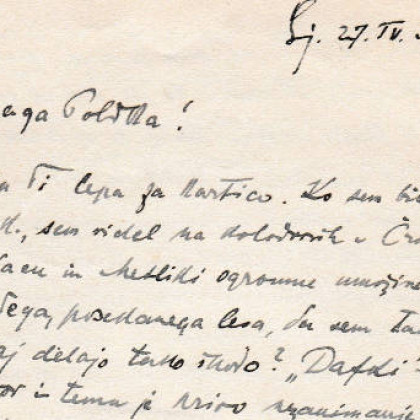 Lj. 27. IV.
aga Poldka!
Ti lepa za kartico. Ko sem bi
sem videl na kolodvorih v Čr
in Metliki ogromne množine
ega, posekanega lesa, da sem
aj delajo tako škodo? "Dafdi
or in temu je krivo nezanimanje